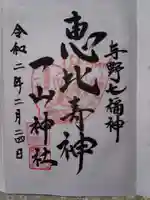 与野七福神
恵比寿神
一山神社
令和二年二月二四日